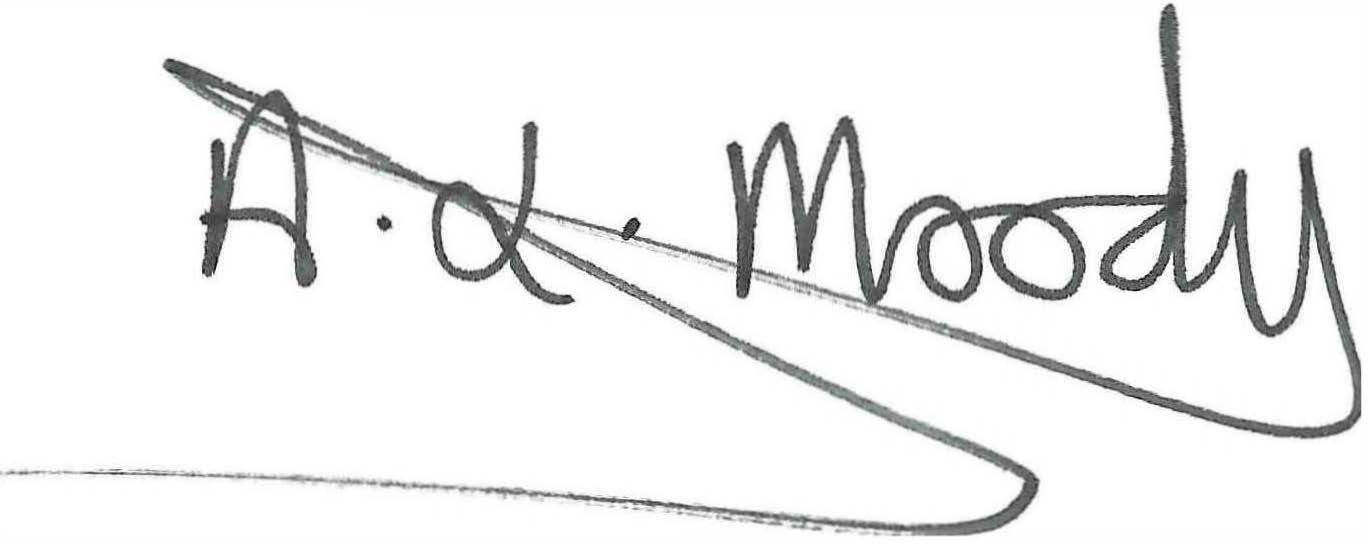 A.α.Moody